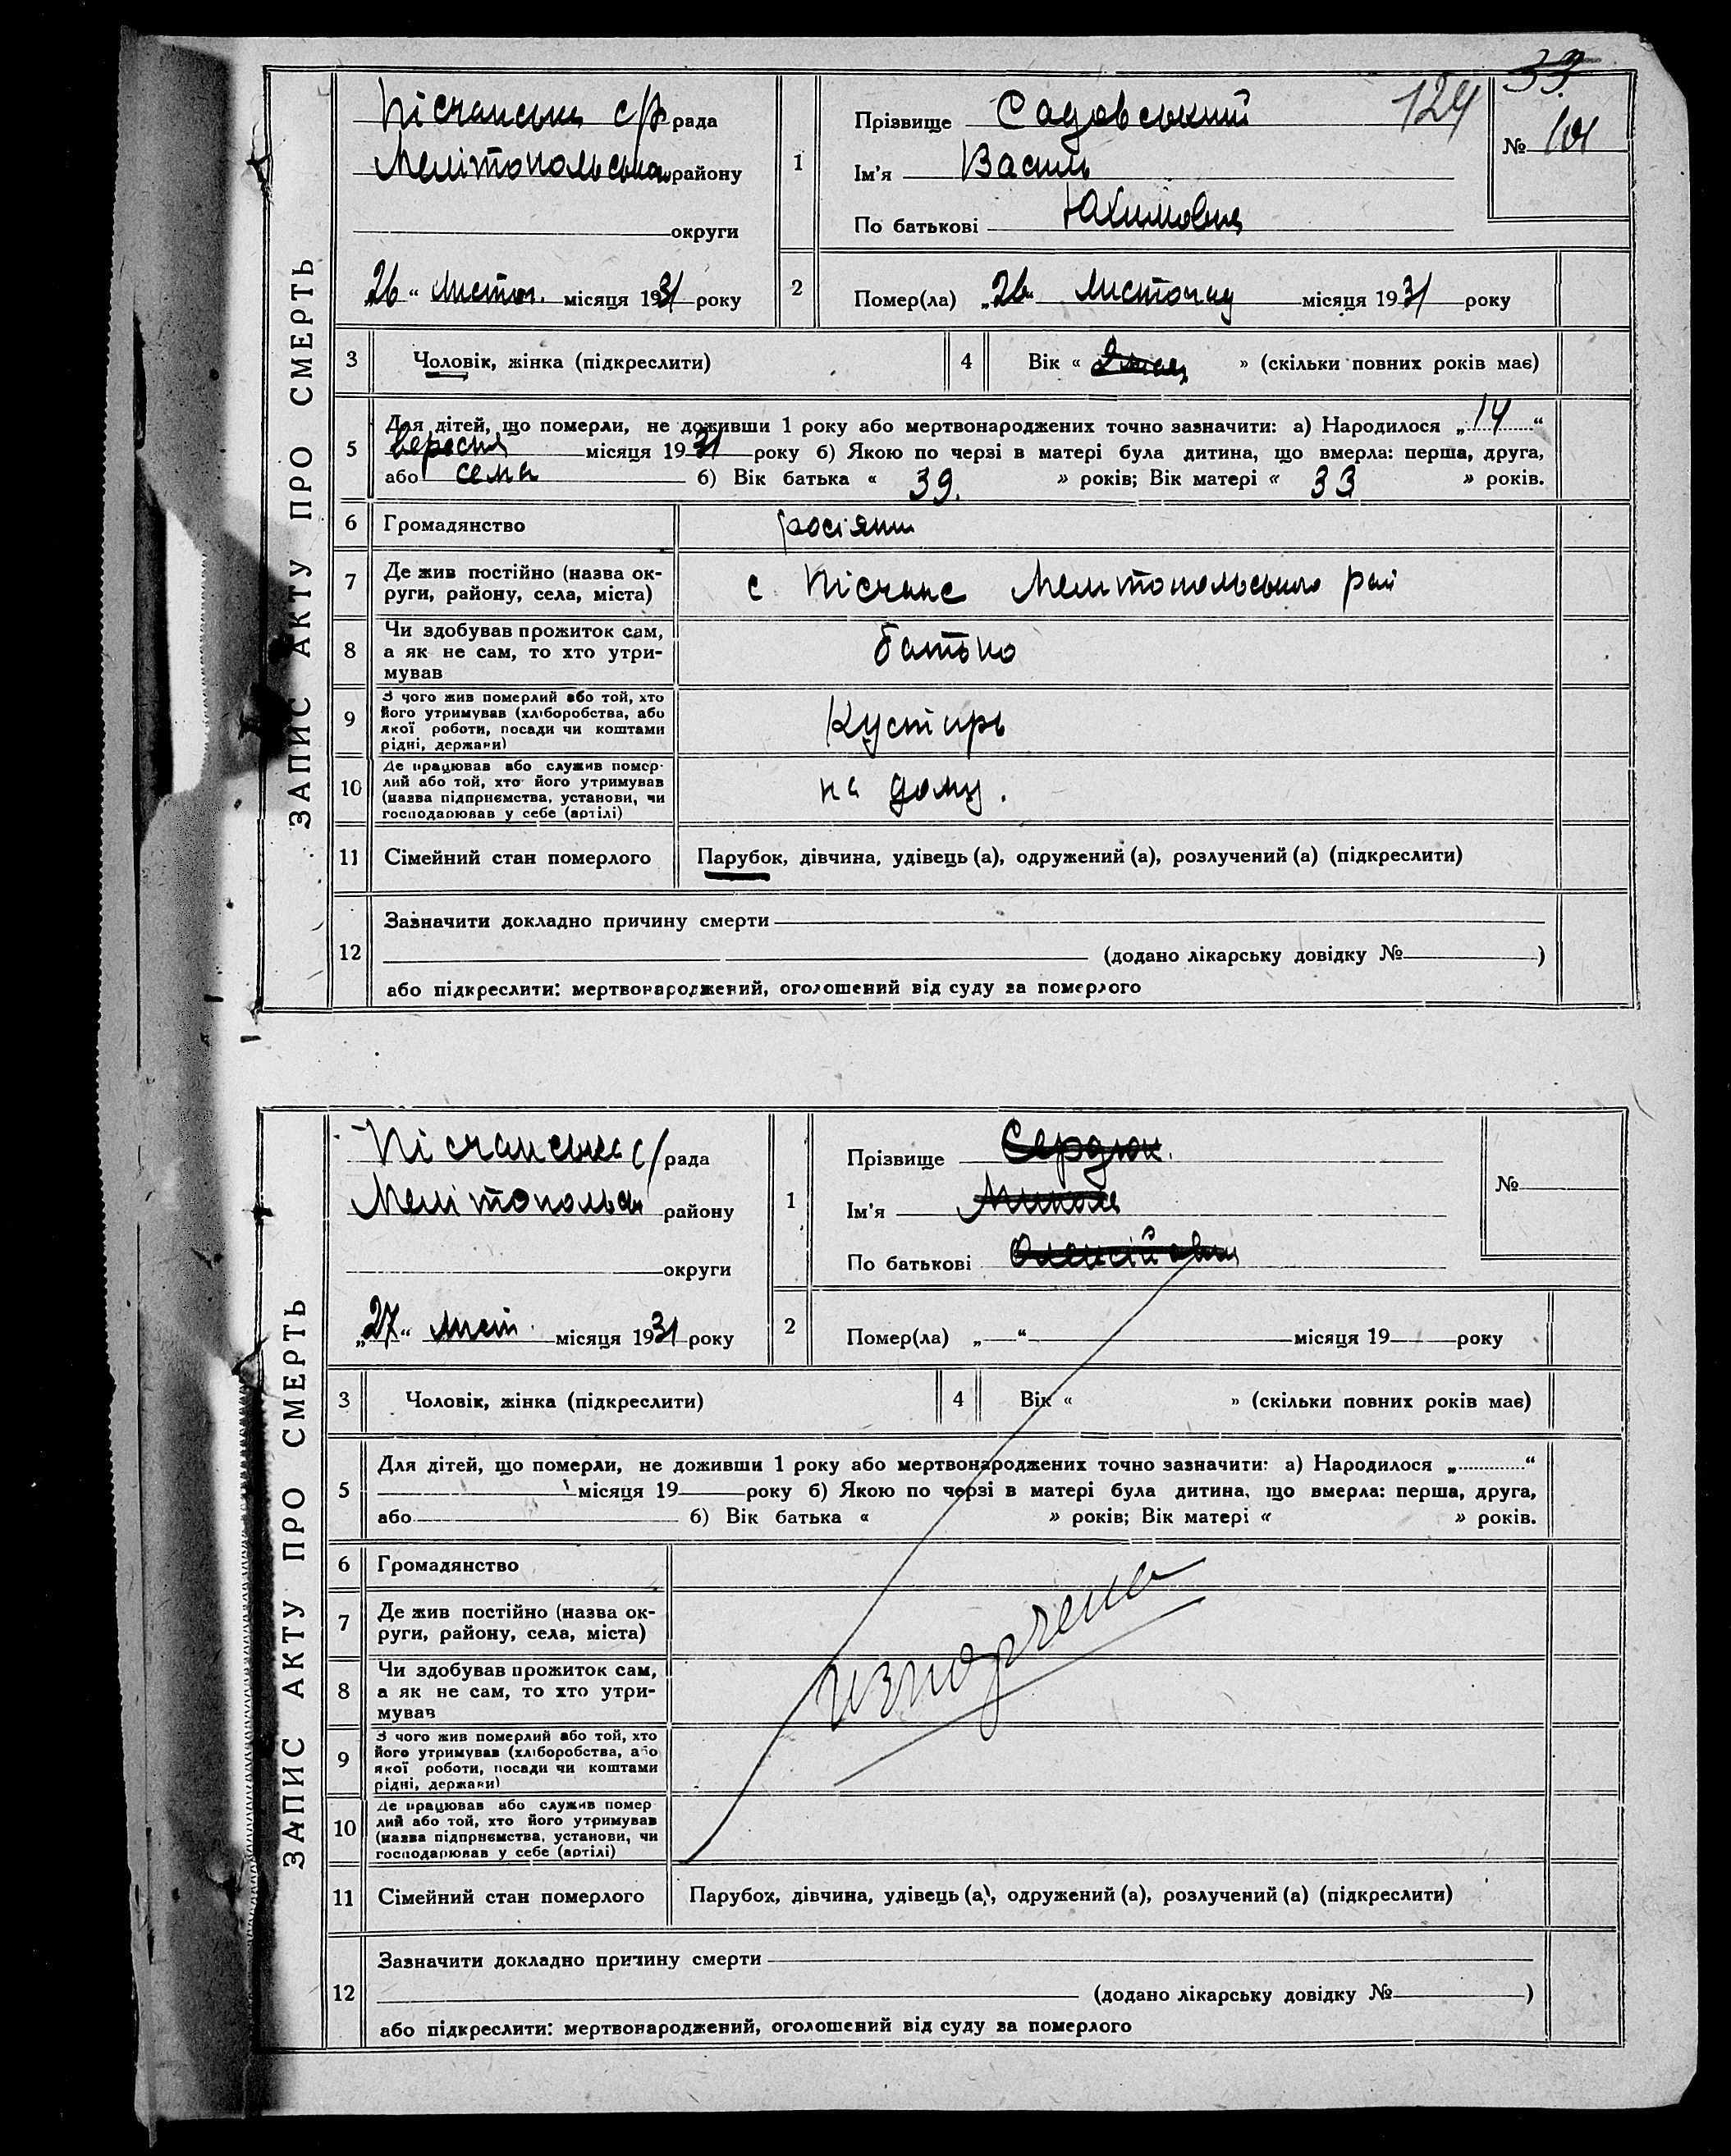 33
124
ЗАПИС АКТУ ПРО СМЕРТЬ
Пісчанська с/р рада
Мелітопольськ району
округи
26 “ листоп. місяця 1931 року
1
Прізвище Садовський
Ім'я Василь
По батькові Юхимович
№ 101
2
Помер(ла) „26“ листопад місяця 1931 року
3 Чоловік, жінка (підкреслити)
4 Вік « » (скільки повних років має)
5 Для дітей, що померли, не доживши 1 року або мертвонароджених точно зазначити: а) Народилося „14“
вересня місяця 1931 року б) Якою по черзі в матері була дитина, що вмерла: перша, друга,
або сема б) Вік батька « 39. » років; Вік матері « 33 » років.
6 Громадянство росіянин
7 Де жив постійно (назва ок-
руги, району, села, міста)
с. Пісчане Мелітопольського рай
8 Чи здобував прожиток сам,
а як не сам, то хто утри-
мував
батько
9 З чого жив померлий або той, хто
його утримував (хліборобства, або
якої роботи, посади чи коштами
рідні, держави)
Кустирь
10 Де працював або служив помер-
лий або той, хто його утримував
(назва підприємства, установи, чи
господарював у себе (артілі)
на дому.
11 Сімейний стан померлого Парубок, дівчина, удівець (а), одружений (а), розлучений (а) (підкреслити)
12 Зазначити докладно причину смерти
(додано лікарську довідку № )
або підкреслити: мертвонароджений, оголошений від суду за померлого
ЗАПИС АКТУ ПРО СМЕРТЬ
Пісчанська с/ рада
Мелітопольськ району
округи
„27“ лист. місяця 1931 року
1
Прізвище Сердюк
Ім'я Микола
По батькові Олексійович
№
2
Помер(ла) „ “ місяця 19 року
3 Чоловік, жінка (підкреслити)
4 Вік « » (скільки повних років має)
5 Для дітей, що померли, не доживши 1 року або мертвонароджених точно зазначити: а) Народилося „ “
місяця 19 року б) Якою по черзі в матері була дитина, що вмерла: перша, друга,
або б) Вік батька « » років; Вік матері « » років.
6 Громадянство
7 Де жив постійно (назва ок-
руги, району, села, міста)
8 Чи здобував прожиток сам,
а як не сам, то хто утри-
мував
изпорчена
9 З чого жив померлий або той, хто
його утримував (хліборобства, або
якої роботи, посади чи коштами
рідні, держави)
10 Де працював або служив помер
лий або той, хто його утримував
(назва підприємства, установи, чи
господарював у себе (артілі)
11 Сімейний стан померлого Парубох, дівчина, удівець (а), одружений (а), розлучений (а) (підкреслити)
12 Зазначити докладно причину смерти
(додано лікарську довідку № )
або підкреслити: мертвонароджений, оголошений від суду за померлого